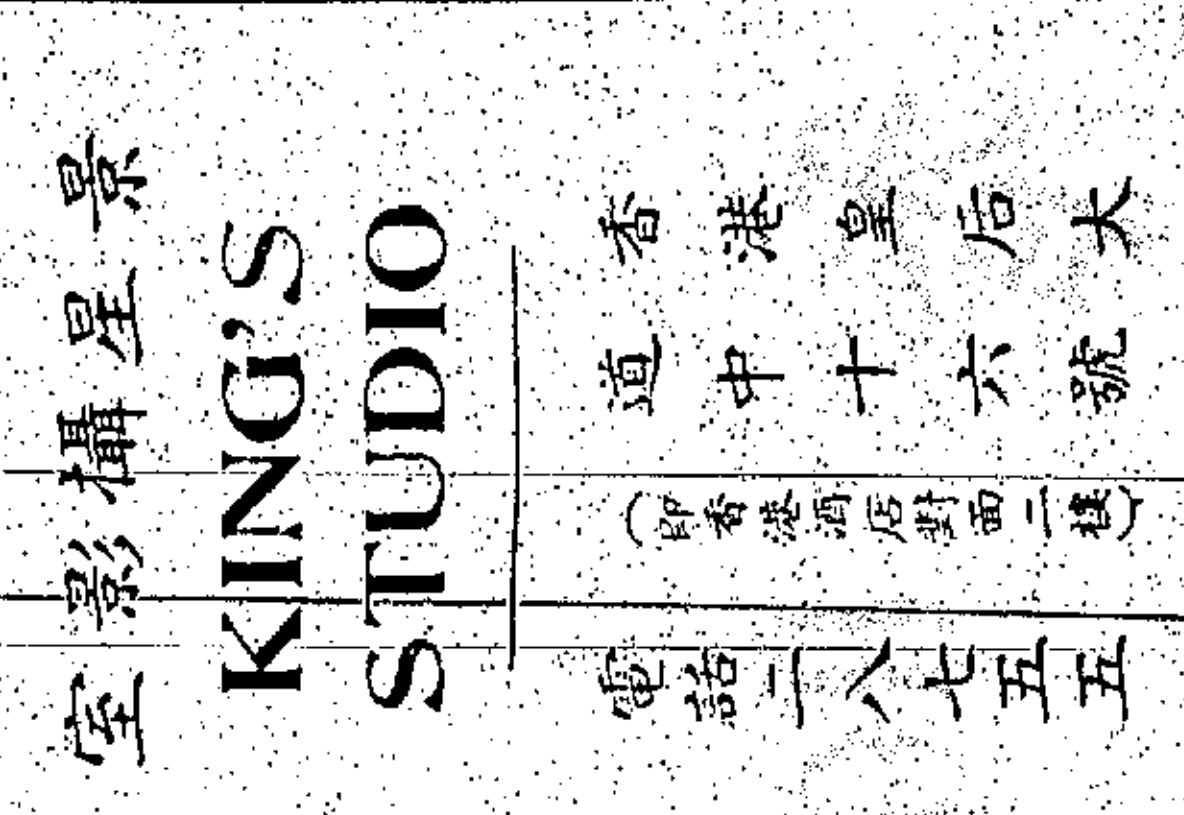 景星攝影室
KING'S
STUDIO
香港皇后大
道中十六號
(即香港酒店對面二樓)
電話二八七五五